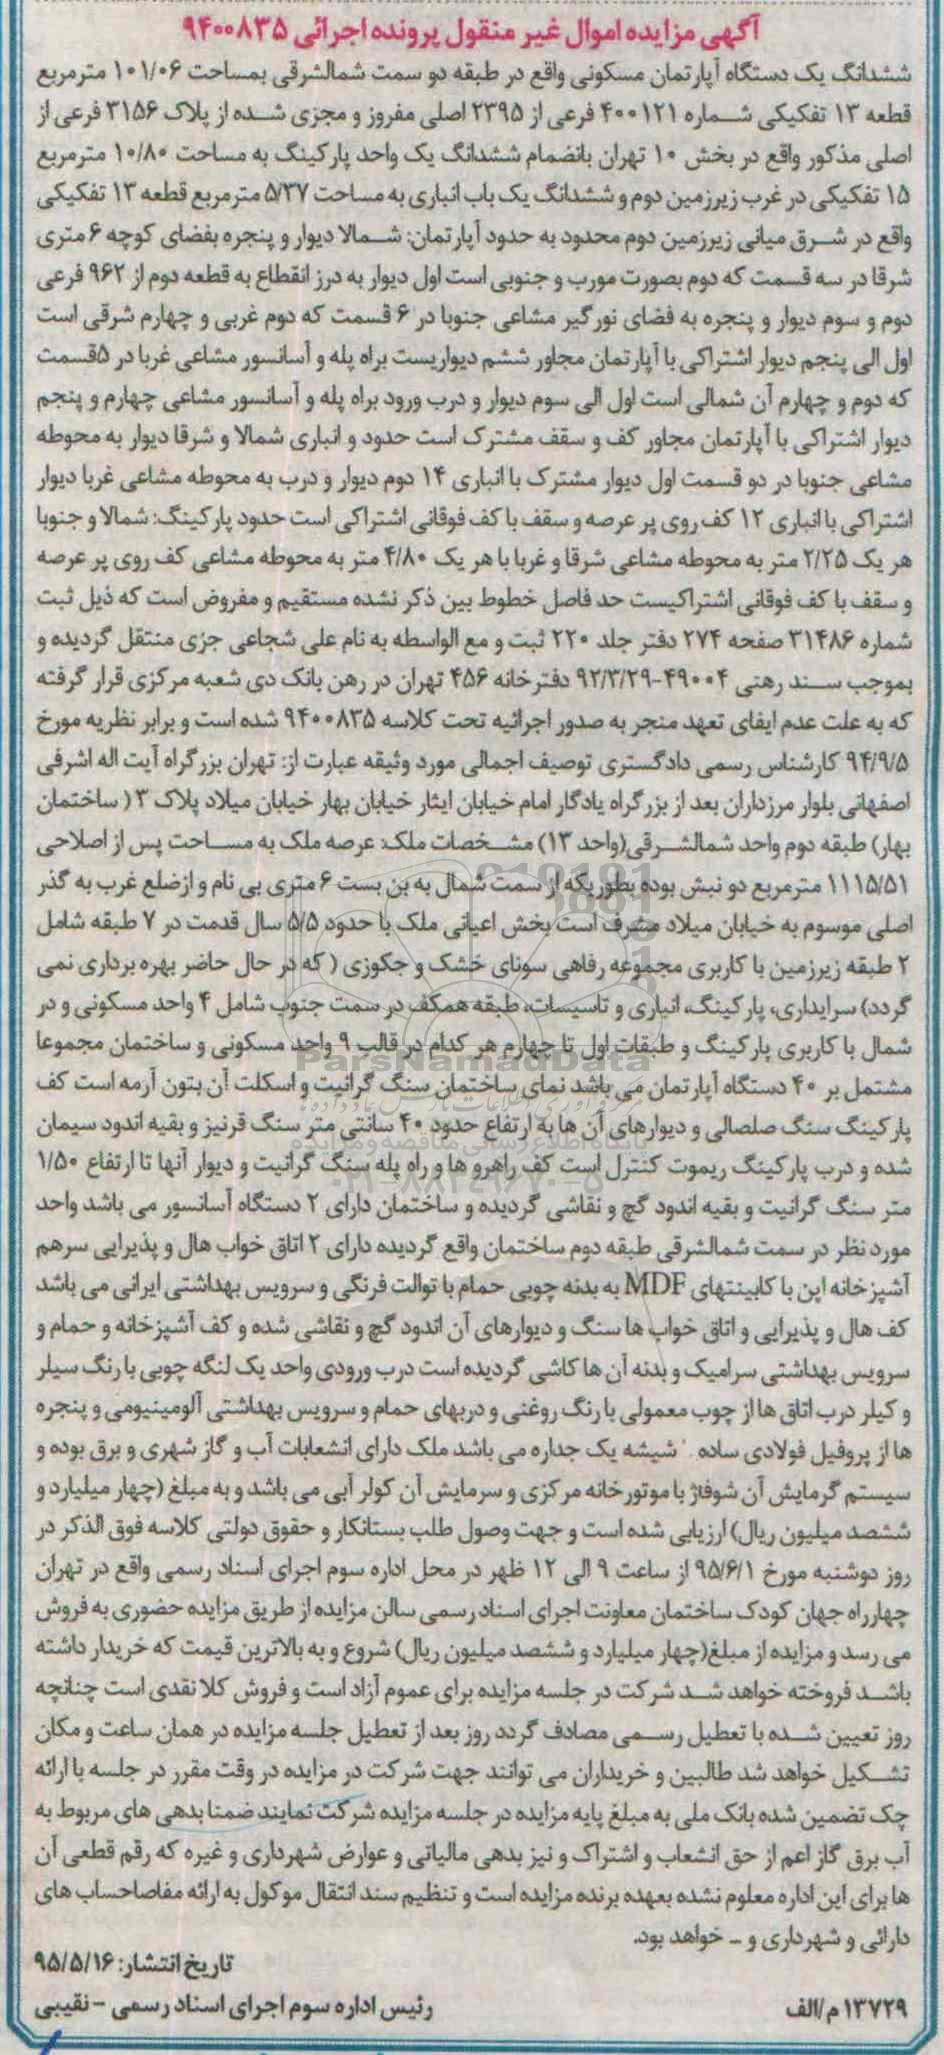 آگهی مزایده اموال غیر منقول پرونده اجرائی ۹۴۰۰۸۳۵
ششدانگ یک دستگاه آپارتمان مسکونی واقع در طبقه دو سمت شمالشرقی بمساحت ۱۰۱/۰۶ مترمربع
قطعه ۱۳ تفکیکی شماره ۴۰۰۱۲۱ فرعی از ۲۳۹۵ اصلی مفروز و مجزی شده از پلاک ۳۱۵۶ فرعی از
اصلی مذکور واقع در بخش ۱۰ تهران بانضمام ششدانگ یک واحد پارکینگ به مساحت ۱۰/۸۰ مترمربع
۱۵ تفکیکی در غرب زیرزمین دوم و ششدانگ یک باب انباری به مساحت ۵/۳۷ مترمربع قطعه ۱۳ تفکیکی
واقع در شرق میانی زیرزمین دوم محدود به حدود آپارتمان: شمالا دیوار و پنجره بفضای کوچه ۶ متری
شرقا در سه قسمت که دوم بصورت مورب و جنوبی است اول دیوار به درز انقطاع به قطعه دوم از ۹۶۲ فرعی
دوم و سوم دیوار و پنجره به فضای نورگیر مشاعی جنوبا در ۶ قسمت که دوم غربی و چهارم شرقی است
اول الی پنجم دیوار اشتراکی با آپارتمان مجاور ششم دیواریست براه پله و آسانسور مشاعی غربا در ۵قسمت
که دوم و چهارم آن شمالی است اول الی سوم دیوار و درب ورود براه پله و آسانسور مشاعی چهارم و پنجم
دیوار اشتراکی با آپارتمان مجاور کف و سقف مشترک است حدود و انباری شمالا و شرقا دیوار به محوطه
مشاعی جنوبا در دو قسمت اول دیوار مشترک با انباری ۱۴ دوم دیوار و درب به محوطه مشاعی غربا دیوار
اشتراکی با انباری ۱۲ کف روی پر عرصه و سقف با کف فوقانی اشتراکی است حدود پارکینگ: شمالا و جنوبا
هر یک ۲/۲۵ متر به محوطه مشاعی شرقا و غربا با هر یک ۴/۸۰ متر به محوطه مشاعی کف روی پر عرصه
و سقف با کف فوقانی اشتراکیست حد فاصل خطوط بین ذکر نشده مستقیم و مفروض است که ذیل ثبت
شماره ۳۱۴۸۶ صفحه ۲۷۴ دفتر جلد ۲۲۰ ثبت و مع الواسطه به نام علی شجاعی جزی منتقل گردیده و
بموجب سند رهنی ۴۹۰۰۴-۹۲/۳/۲۹ دفترخانه ۴۵۶ تهران در رهن بانک دی شعبه مرکزی قرار گرفته
که به علت عدم ایفای تعهد منجر به صدور اجرائیه تحت کلاسه ۹۴۰۰۸۳۵ شده است و برابر نظریه مورخ
۹۴/۹/۵ کارشناس رسمی دادگستری توصیف اجمالی مورد وثیقه عبارت از: تهران بزرگراه آیت اله اشرفی
اصفهانی بلوار مرزداران بعد از بزرگراه یادگار امام خیابان ایثار خیابان بهار خیابان میلاد پلاک ۳ ( ساختمان
بهار) طبقه دوم واحد شمالشرقی(واحد ۱۳) مشخصات ملک: عرصه ملک به مساحت پس از اصلاحی
۱۱۱۵/۵۱ مترمربع دو نبش بوده بطوریکه از سمت شمال به بن بست ۶ متری بی نام و ازضلع غرب به گذر
اصلی موسوم به خیابان میلاد مشرف است بخش اعیانی ملک با حدود ۵/۵ سال قدمت در ۷ طبقه شامل
۲ طبقه زیرزمین با کاربری مجموعه رفاهی سونای خشک و جکوزی ( که در حال حاضر بهره برداری نمی
گردد) سرایداری، پارکینگ، انباری و تاسیسات، طبقه همکف در سمت جنوب شامل ۴ واحد مسکونی و در
شمال با کاربری پارکینگ و طبقات اول تا چهارم هر کدام در قالب ۹ واحد مسکونی و ساختمان مجموعا
مشتمل بر ۴۰ دستگاه آپارتمان می باشد نمای ساختمان سنگ گرانیت و اسکلت آن بتون آرمه است کف
پارکینگ سنگ صلصالی و دیوارهای آن ها به ارتفاع حدود ۴۰ سانتی متر سنگ قرنیز و بقیه اندود سیمان
شده و درب پارکینگ ریموت کنترل است کف راهرو ها و راه پله سنگ گرانیت و دیوار آنها تا ارتفاع ۱/۵۰
متر سنگ گرانیت و بقیه اندود گچ و نقاشی گردیده و ساختمان دارای ۲ دستگاه آسانسور می باشد واحد
مورد نظر در سمت شمالشرقی طبقه دوم ساختمان واقع گردیده دارای ۲ اتاق خواب هال و پذیرایی سرهم
آشپزخانه اپن با کابینتهای MDF به بدنه چوبی حمام با توالت فرنگی و سرویس بهداشتی ایرانی می باشد
کف هال و پذیرایی و اتاق خواب ها سنگ و دیوارهای آن اندود گچ و نقاشی شده و کف آشپزخانه و حمام و
سرویس بهداشتی سرامیک و بدنه آن ها کاشی گردیده است درب ورودی واحد یک لنگه چوبی با رنگ سیلر
و کیلر درب اتاق ها از چوب معمولی با رنگ روغنی و دربهای حمام و سرویس بهداشتی آلومینیومی و پنجره
ها از پروفیل فولادی ساده شیشه یک جداره می باشد ملک دارای انشعابات آب و گاز شهری و برق بوده و
سیستم گرمایش آن شوفاژ با موتورخانه مرکزی و سرمایش آن کولر آبی می باشد و به مبلغ (چهار میلیارد و
ششصد میلیون ریال) ارزیابی شده است و جهت وصول طلب بستانکار و حقوق دولتی کلاسه فوق الذکر در
روز دوشنبه مورخ ۹۵/۶/۱ از ساعت ۹ الی ۱۲ ظهر در محل اداره سوم اجرای اسناد رسمی واقع در تهران
چهارراه جهان کودک ساختمان معاونت اجرای اسناد رسمی سالن مزایده از طریق مزایده حضوری به فروش
می رسد و مزایده از مبلغ(چهار میلیارد و ششصد میلیون ریال) شروع و به بالاترین قیمت که خریدار داشته
باشد فروخته خواهد شد شرکت در جلسه مزایده برای عموم آزاد است و فروش کلا نقدی است چنانچه
روز تعیین شده با تعطیل رسمی مصادف گردد روز بعد از تعطیل جلسه مزایده در همان ساعت و مکان
تشکیل خواهد شد طالبین و خریداران می توانند جهت شرکت در مزایده در وقت مقرر در جلسه با ارائه
چک تضمین شده بانک ملی به مبلغ پایه مزایده در جلسه مزایده شرکت نمایند ضمنا بدهی های مربوط به
آب برق گاز اعم از حق انشعاب و اشتراک و نیز بدهی مالیاتی و عوارض شهرداری و غیره که رقم قطعی آن
ها برای این اداره معلوم نشده بعهده برنده مزایده است و تنظیم سند انتقال موکول به ارائه مفاصاحساب های
دارائی و شهرداری و ... خواهد بود.
تاریخ انتشار: ۹۵/۵/۱۶
رئیس اداره سوم اجرای اسناد رسمی - نقیبی
۱۳۷۲۹ م/الف
ParsNamadData